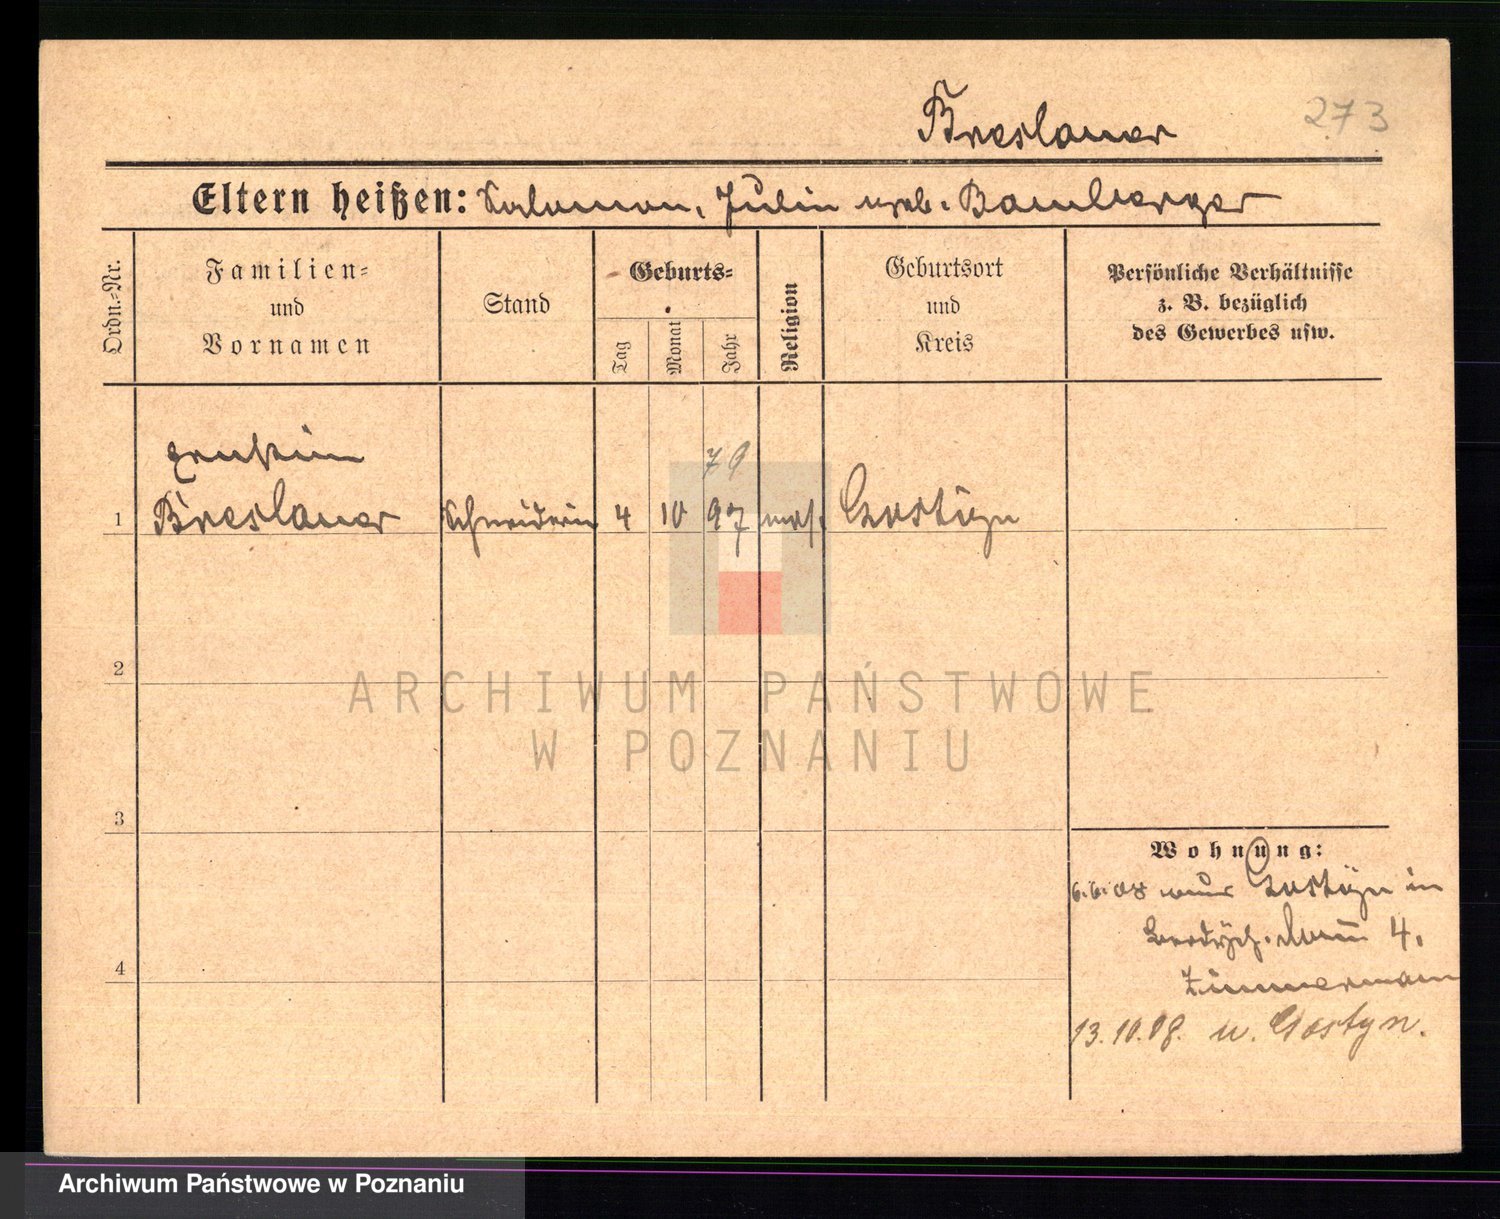 Breslauer
273
Eltern heißen: Salomon, Julie geb. Bamberger
Ordn.=Nr.
Familien=
und
Vornamen
Stand
Geburts=
Tag
Monat
Jahr
Religion
Geburtsort
und
Kreis
Persönliche Verhältnisse
z. B. bezüglich
des Gewerbes usw.
79
1
Breslauer
Schneiderin
4
10
97
mos.
Gostÿn
2
3
4
Wohnung:
6.6.08 aus Gostÿn in
4.
Zimmermann
13.10.08. n. Gostyn.
ARCHIWUM PAŃSTWOWE
W POZNANIU
Archiwum Państwowe w Poznaniu